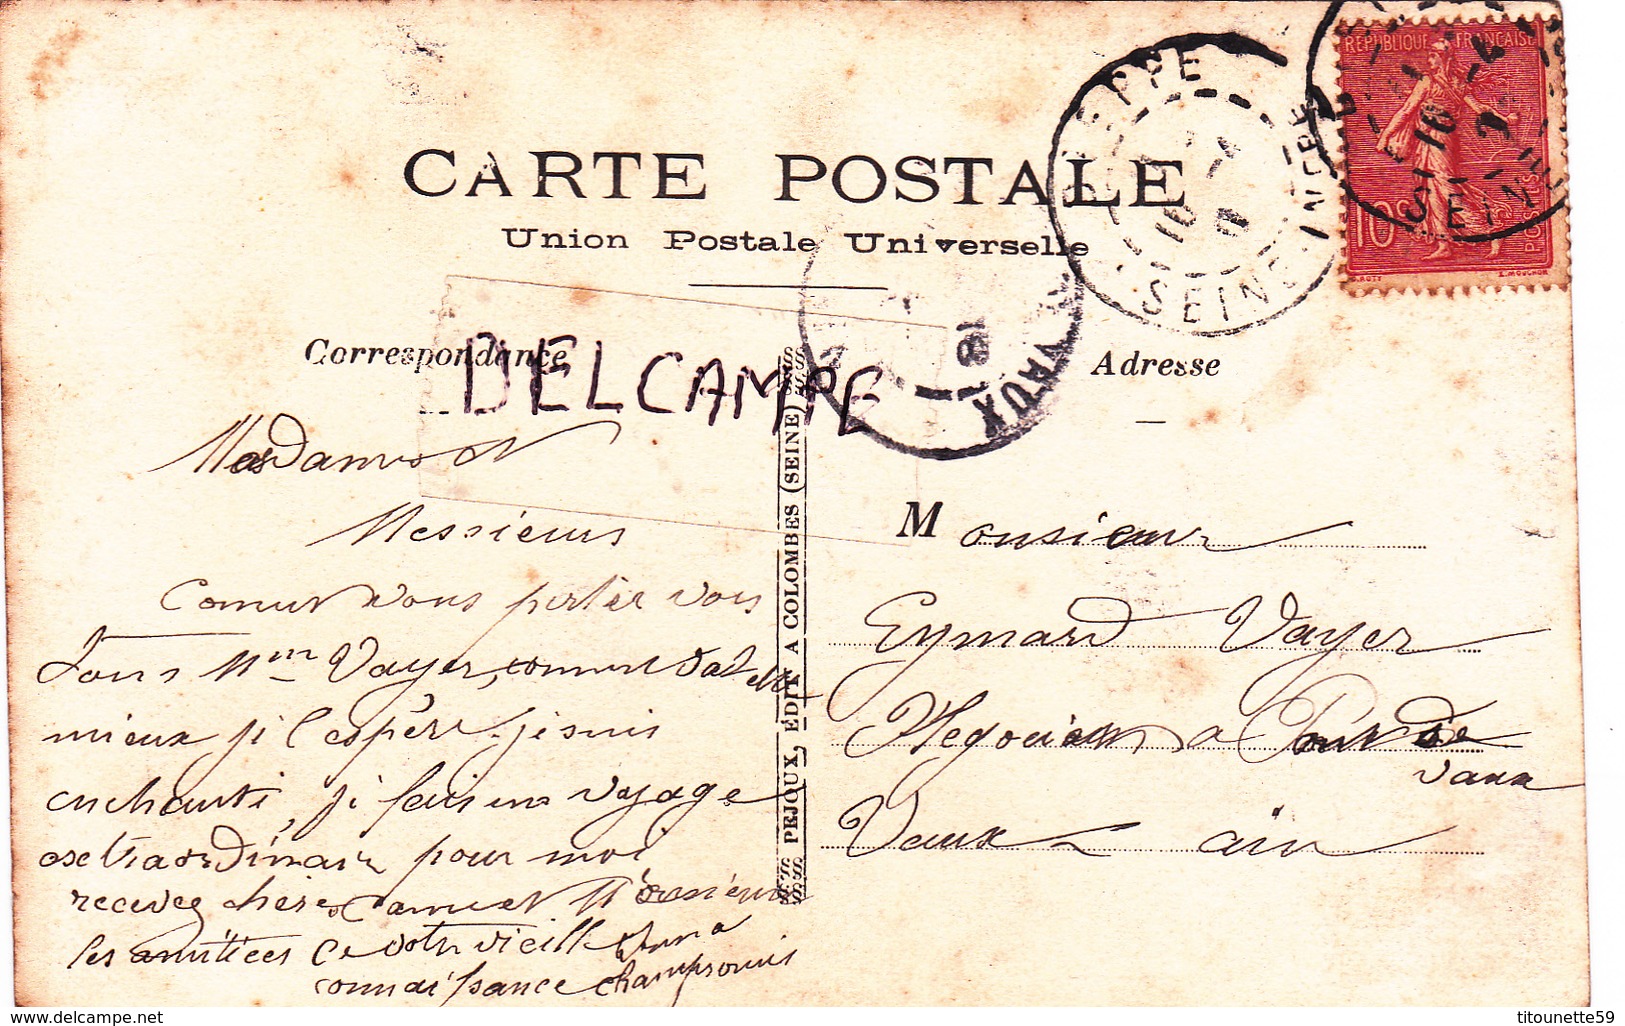 CARTE POSTALE
Union Postale Universelle
REPUBLIQUE FRANÇAISE
10
POSTES
DIEPPE
SEINE INFRE
VAUX
Correspondance
DELCAMPE
Mesdames et
Messieurs
Comment vous portez vous
tous Mme Vayer, comment va t elle
mieux je l'espère. je suis
enchanté, je fais un voyage
extraordinaire pour moi
recevez chères Dames et Messieurs
les amitiées de votre vieille
connaissance
PEJOUX, ÉDIT A COLOMBES (SEINE)
Adresse
Monsieur
Eymard Vayer
Negociant a Pont de
Vaux
Vaux ain
www.delcampe.net
titounette59